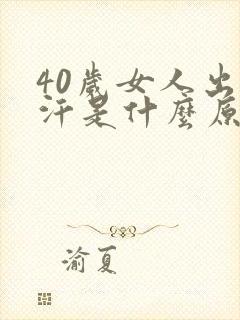 40歲女人出
汗是什麼原
渝夏